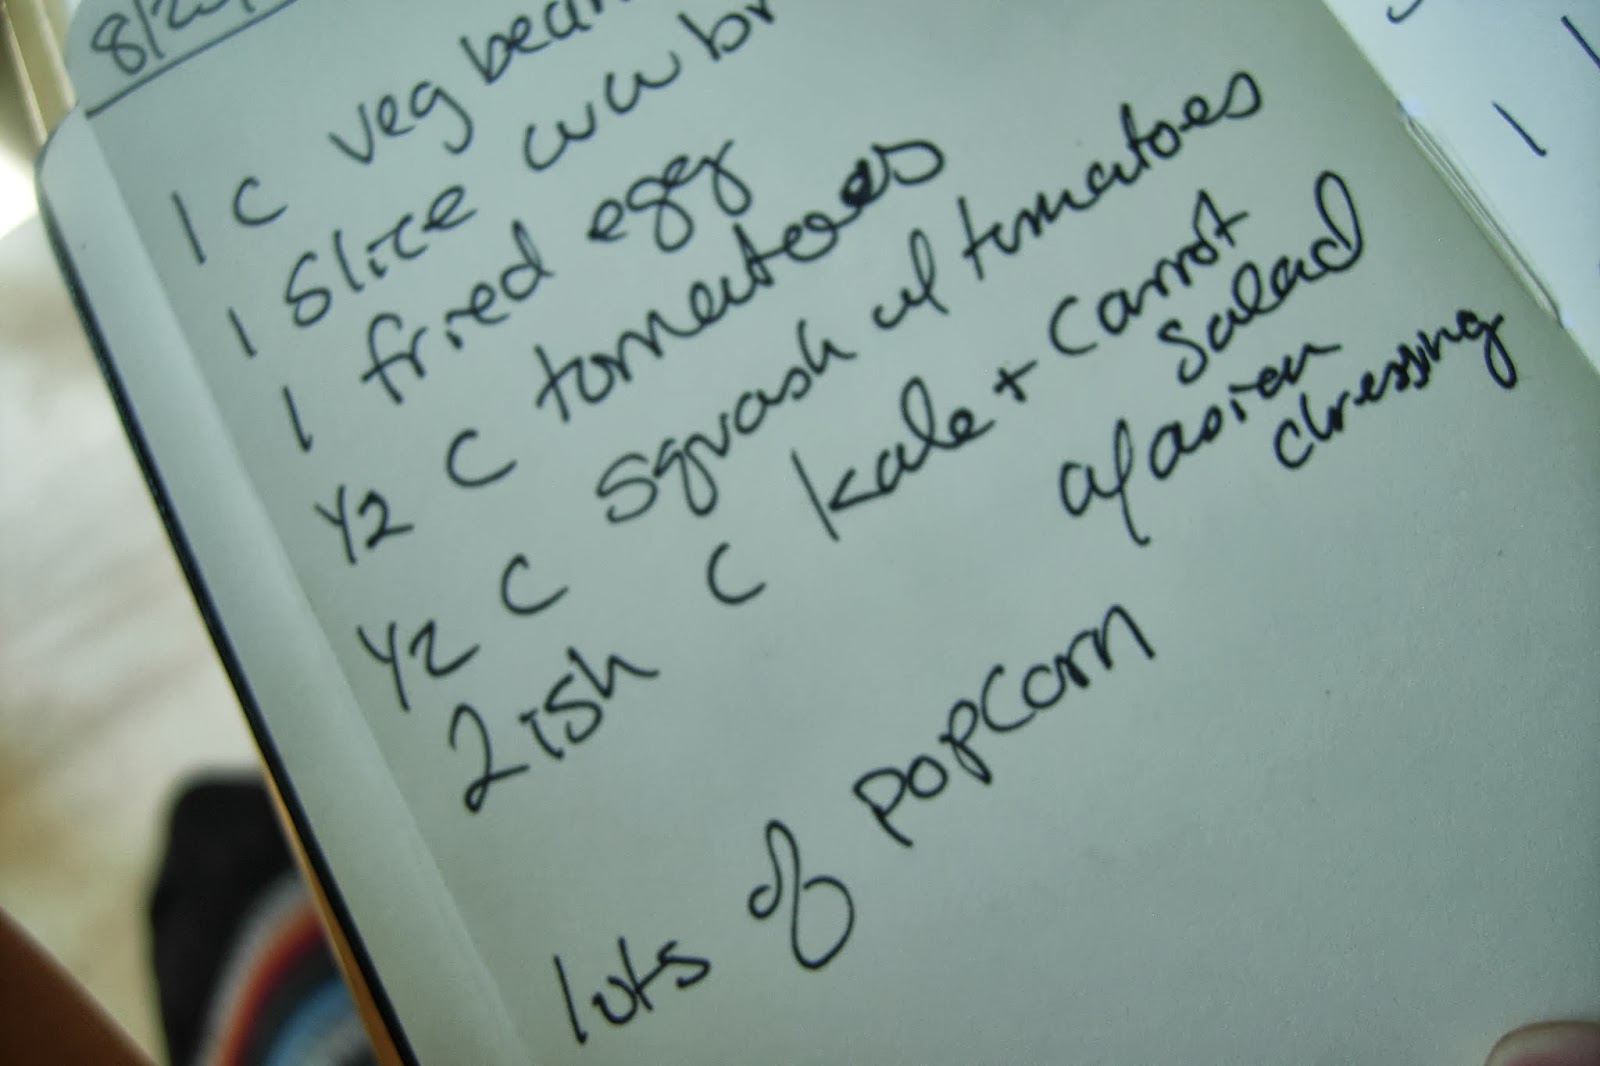 8/2
1 C veg bean
1 slice ww br
1 fried egg
1/2 C tomatoes
1/2 C squash w/ tomatoes
2ish C kale + carrot
salad
w/ asian
dressing
lots of popcorn